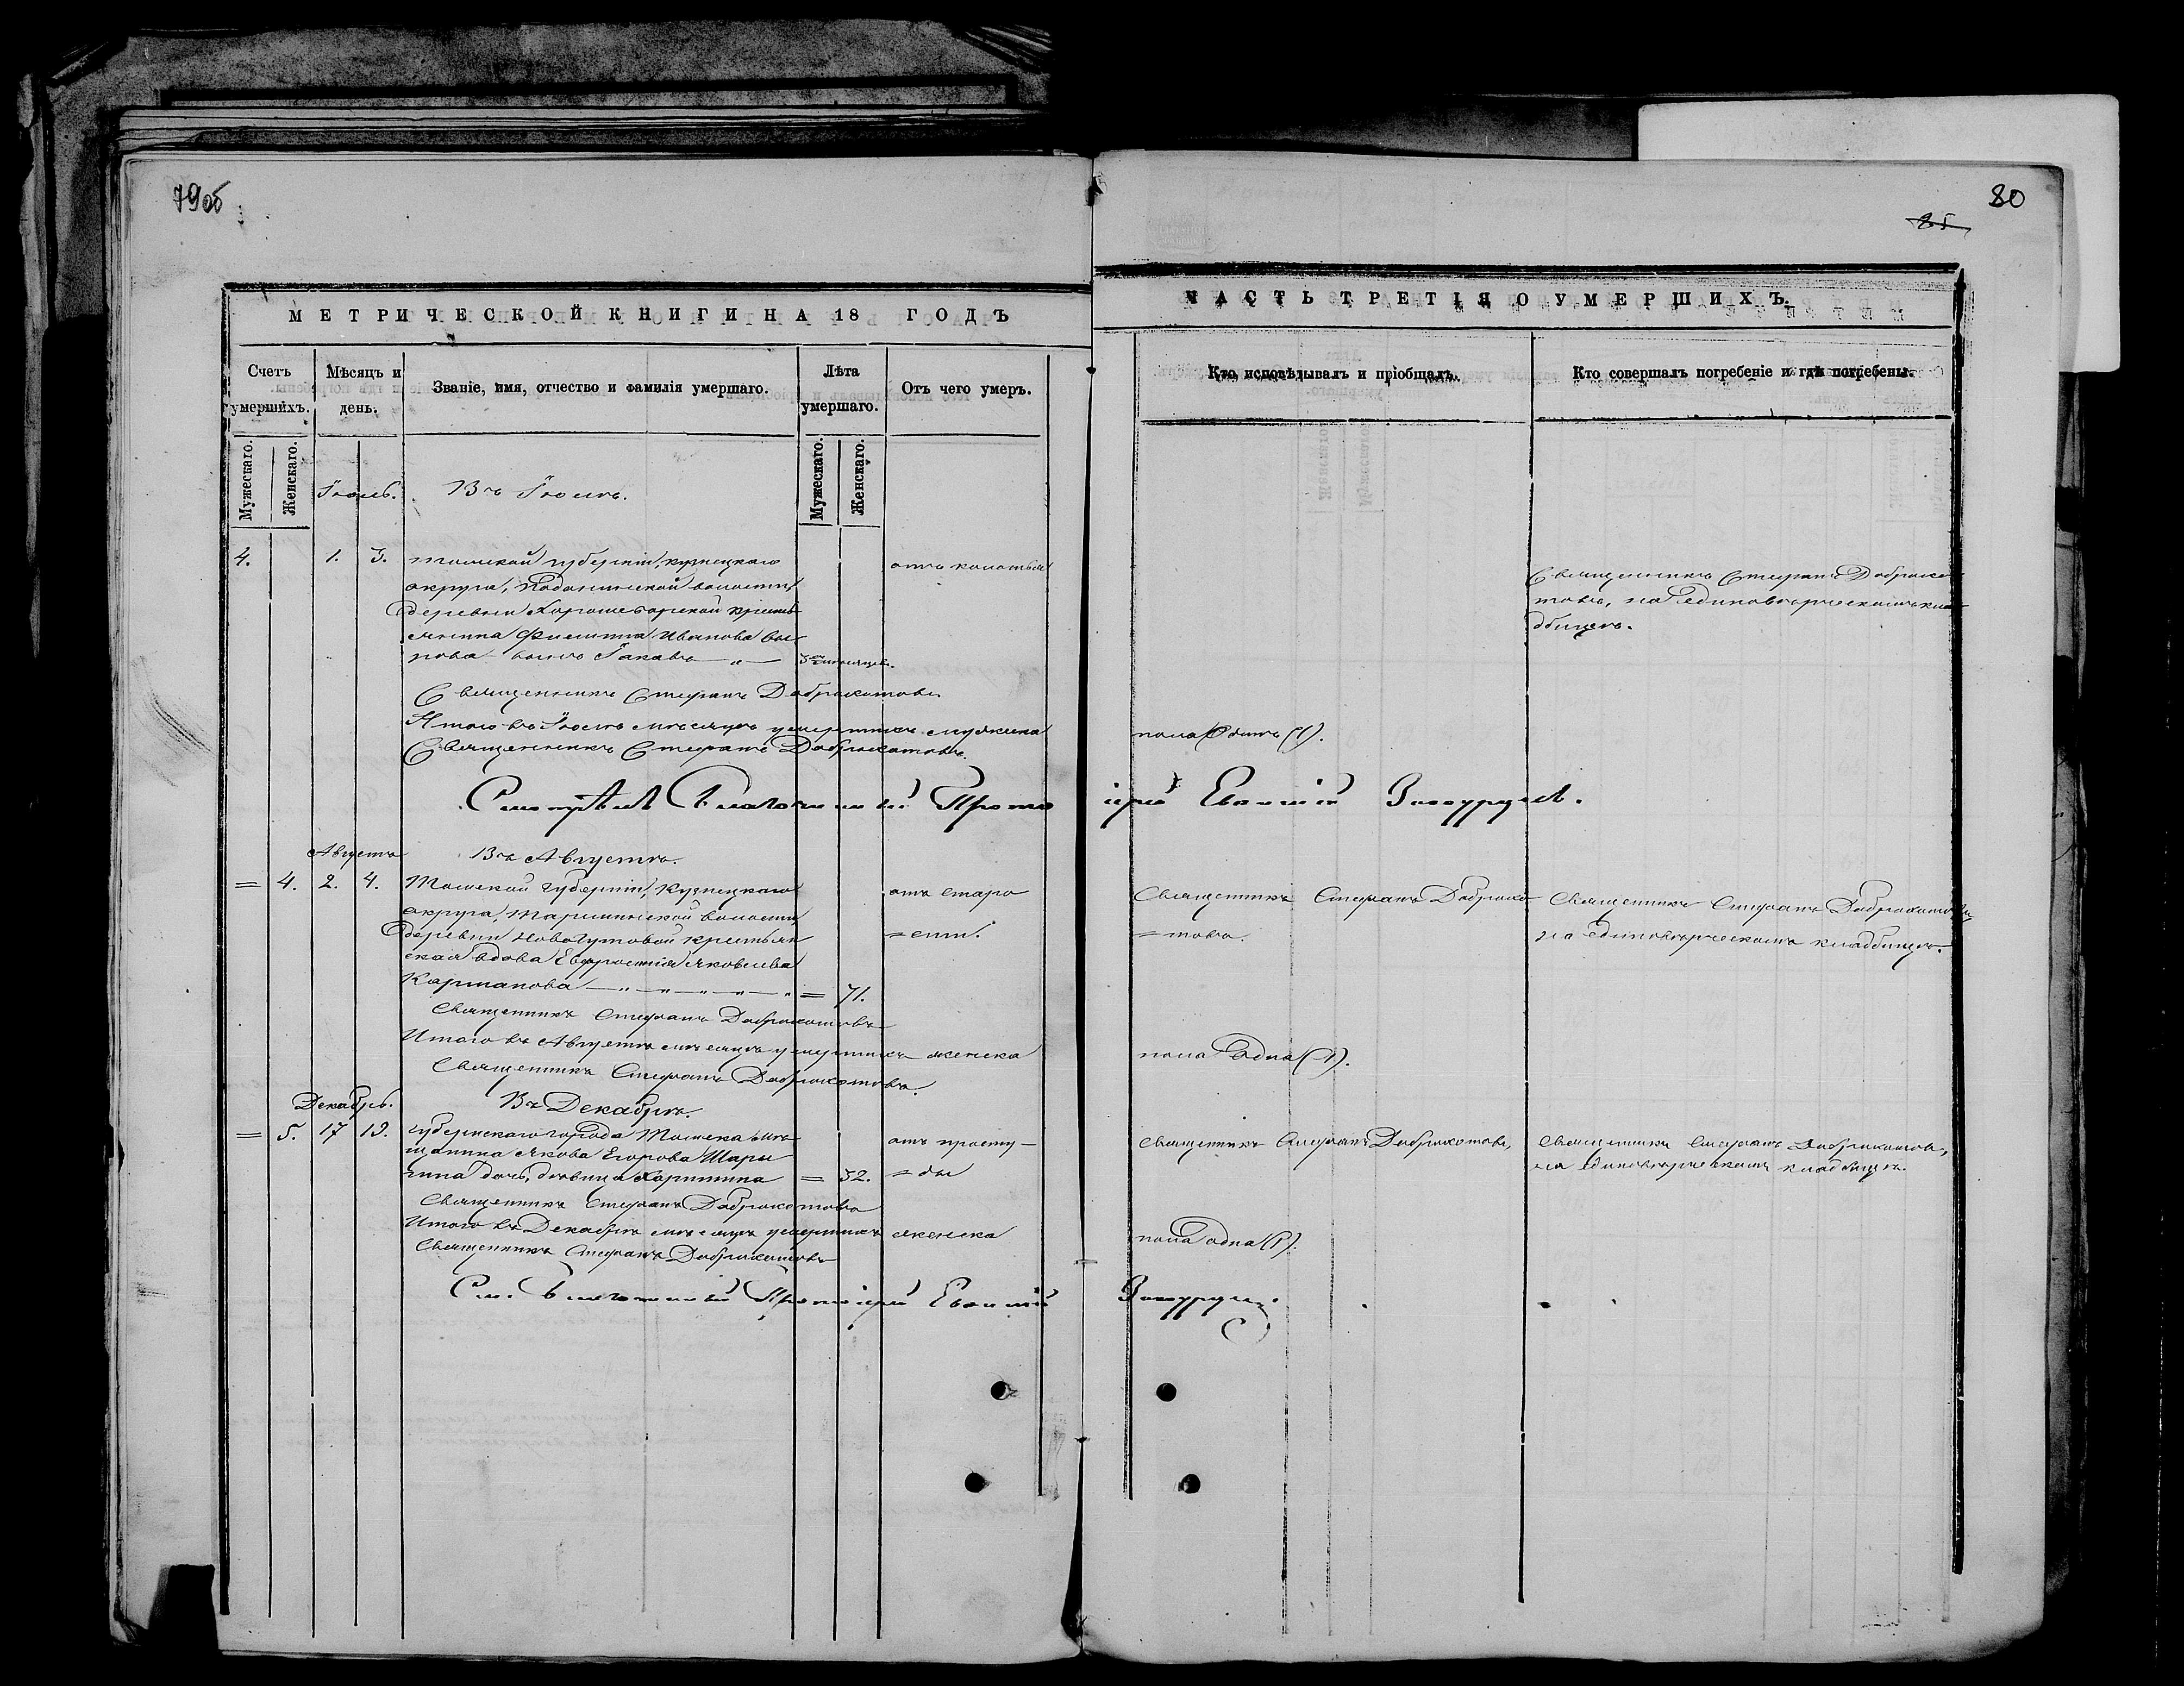 79об
80
85
МЕТРИЧЕСКОЙ КНИГИ НА 18 ГОДЪ
ЧАСТЬ ТРЕТІЯ О УМЕРШИХЪ.
Счетъ умершихъ.
Мѣсяцъ и день.
Званіе, имя, отчество и фамилія умершаго.
Лѣта умершаго.
Отъ чего умеръ.
Кто исповѣдывалъ и пріобщалъ.
Кто совершалъ погребеніе и гдѣ погребены.
Мужескаго.
Женскаго.
Мужескаго.
Женскаго.
Іюль. Въ Іюлѣ.
4. 1. 3. Томской губерніи, Кузнецкаго
округа, волости,
деревни кресть
янина Филиппа Иванова
сынъ Іаковъ
Священникъ Стефанъ Доброхо
товъ, на единовѣрческомъ кла
дбищѣ.
Священникъ Стефанъ Доброхотовъ
Итого въ Іюлѣ мѣсяцѣ умершихъ мужеска пола одинъ (1).
Священникъ Стефанъ Доброхотовъ.
Смотрѣлъ Благочинный Протоіерей
Августъ Въ Августѣ.
= 4. 2. 4. Томской губерніи, Кузнецкаго
округа, Тарминской волости,
деревни Новогутовой крестьян
ская вдова Евфросинія Яковлева
Карманова = 71.
отъ старо
=сти.
Священникъ Стефанъ Доброхо
=товъ.
Священникъ Стефанъ Доброхотовъ,
на единовѣрческомъ кладбищѣ.
Священникъ Стефанъ Доброхотовъ
Итого въ Августѣ мѣсяцѣ умершихъ женска пола одна (1).
Священникъ Стефанъ Доброхотовъ.
Декабрь. Въ Декабрѣ.
= 5. 17 19. Губернскаго города Томска мѣ
щанина Якова Егорова Шары
гина дочь, дѣвица = 52.
отъ просту-
=ды
Священникъ Стефанъ Доброхотовъ,
Священникъ Стефанъ Доброхотовъ,
на единовѣрческомъ кладбищѣ.
Священникъ Стефанъ Доброхотовъ
Итого въ Декабрѣ мѣсяцѣ умершихъ женска пола одна (1).
Священникъ Стефанъ Доброхотовъ
См. Благочинный Протоіерей